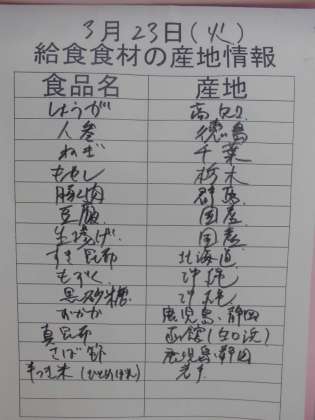 3月23日(火)
給食食材の産地情報
食品名 産地
しょうが 高知
人参 徳島
ねぎ 千葉
もやし 栃木
豚肉 群馬
豆腐 国産
生揚げ 国産
すき昆布 北海道
もずく 沖縄
黒砂糖 沖縄
おかか 鹿児島・静岡
真昆布 函館(白口浜)
さば節 鹿児島・静岡
(ひとめぼれ)